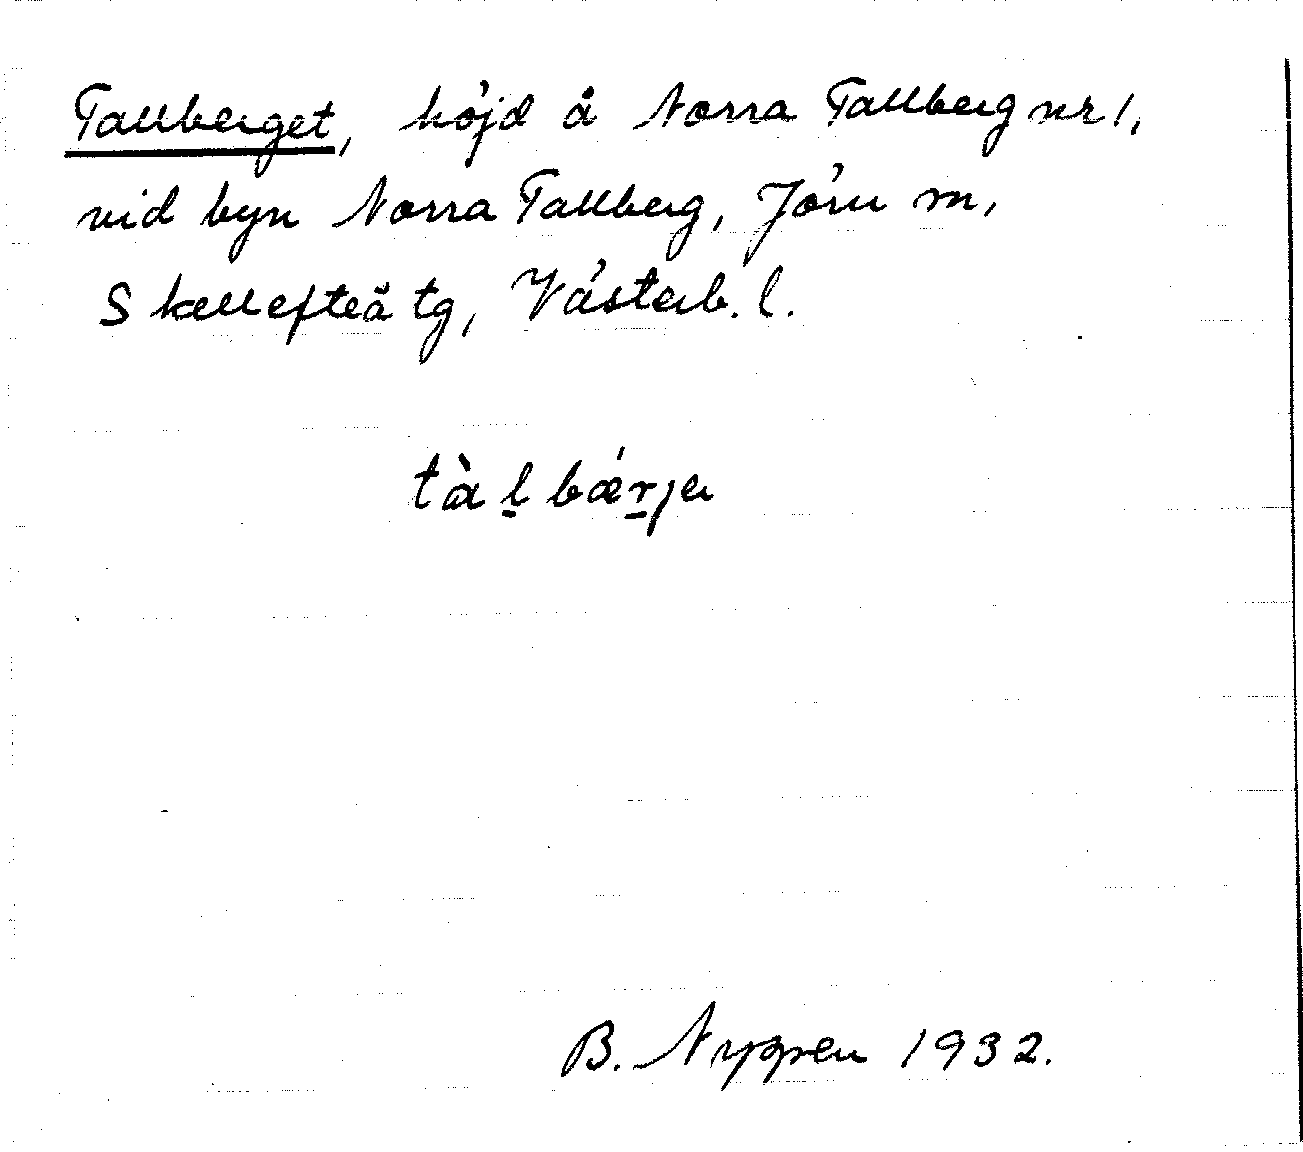 Tallberget, höjd å Norra Tallberg nr 1,
vid byn Norra Tallberg, Jörn sn,
Skellefteå tg, Västerb. l.
tàl̠bǽr̠ja
B. Nygren 1932.